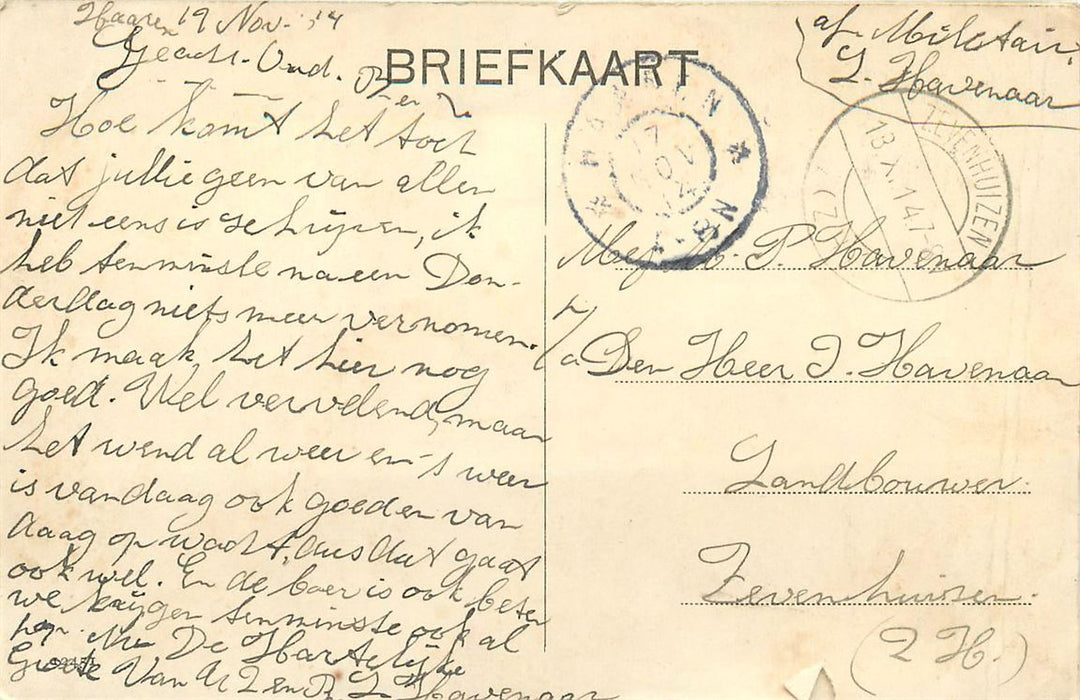 Haaren 19 Nov. 14
Geacht. Oud.
BRIEFKAART
af. Militair
L. Havenaar
HAAREN
N.B.
17
NOV
ZEVENHUIZEN
(Z.H.)
18.XI.14.7-8
Hoe komt het toch
dat jullie geen van allen
niet eens is schrijven, ik
heb tenminste na een Don-
derdag niets meer vernomen.
Ik maak het hier nog
goed. Wel vervelend, maar
het wend al weer en 's weer
is vandaag ook goed en van
daag op wacht, dus dat gaat
ook wel. En de boer is ook beter
we krijgen tenminste ook al
Nu De Hartelijke
Groete Van L. Havenaar
Mej. P. Havenaar
p/a Den Heer J. Havenaar
Landbouwer.
Zevenhuizen.
(Z H.)